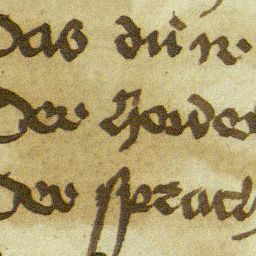 Das dün
Der hende
Der sprach